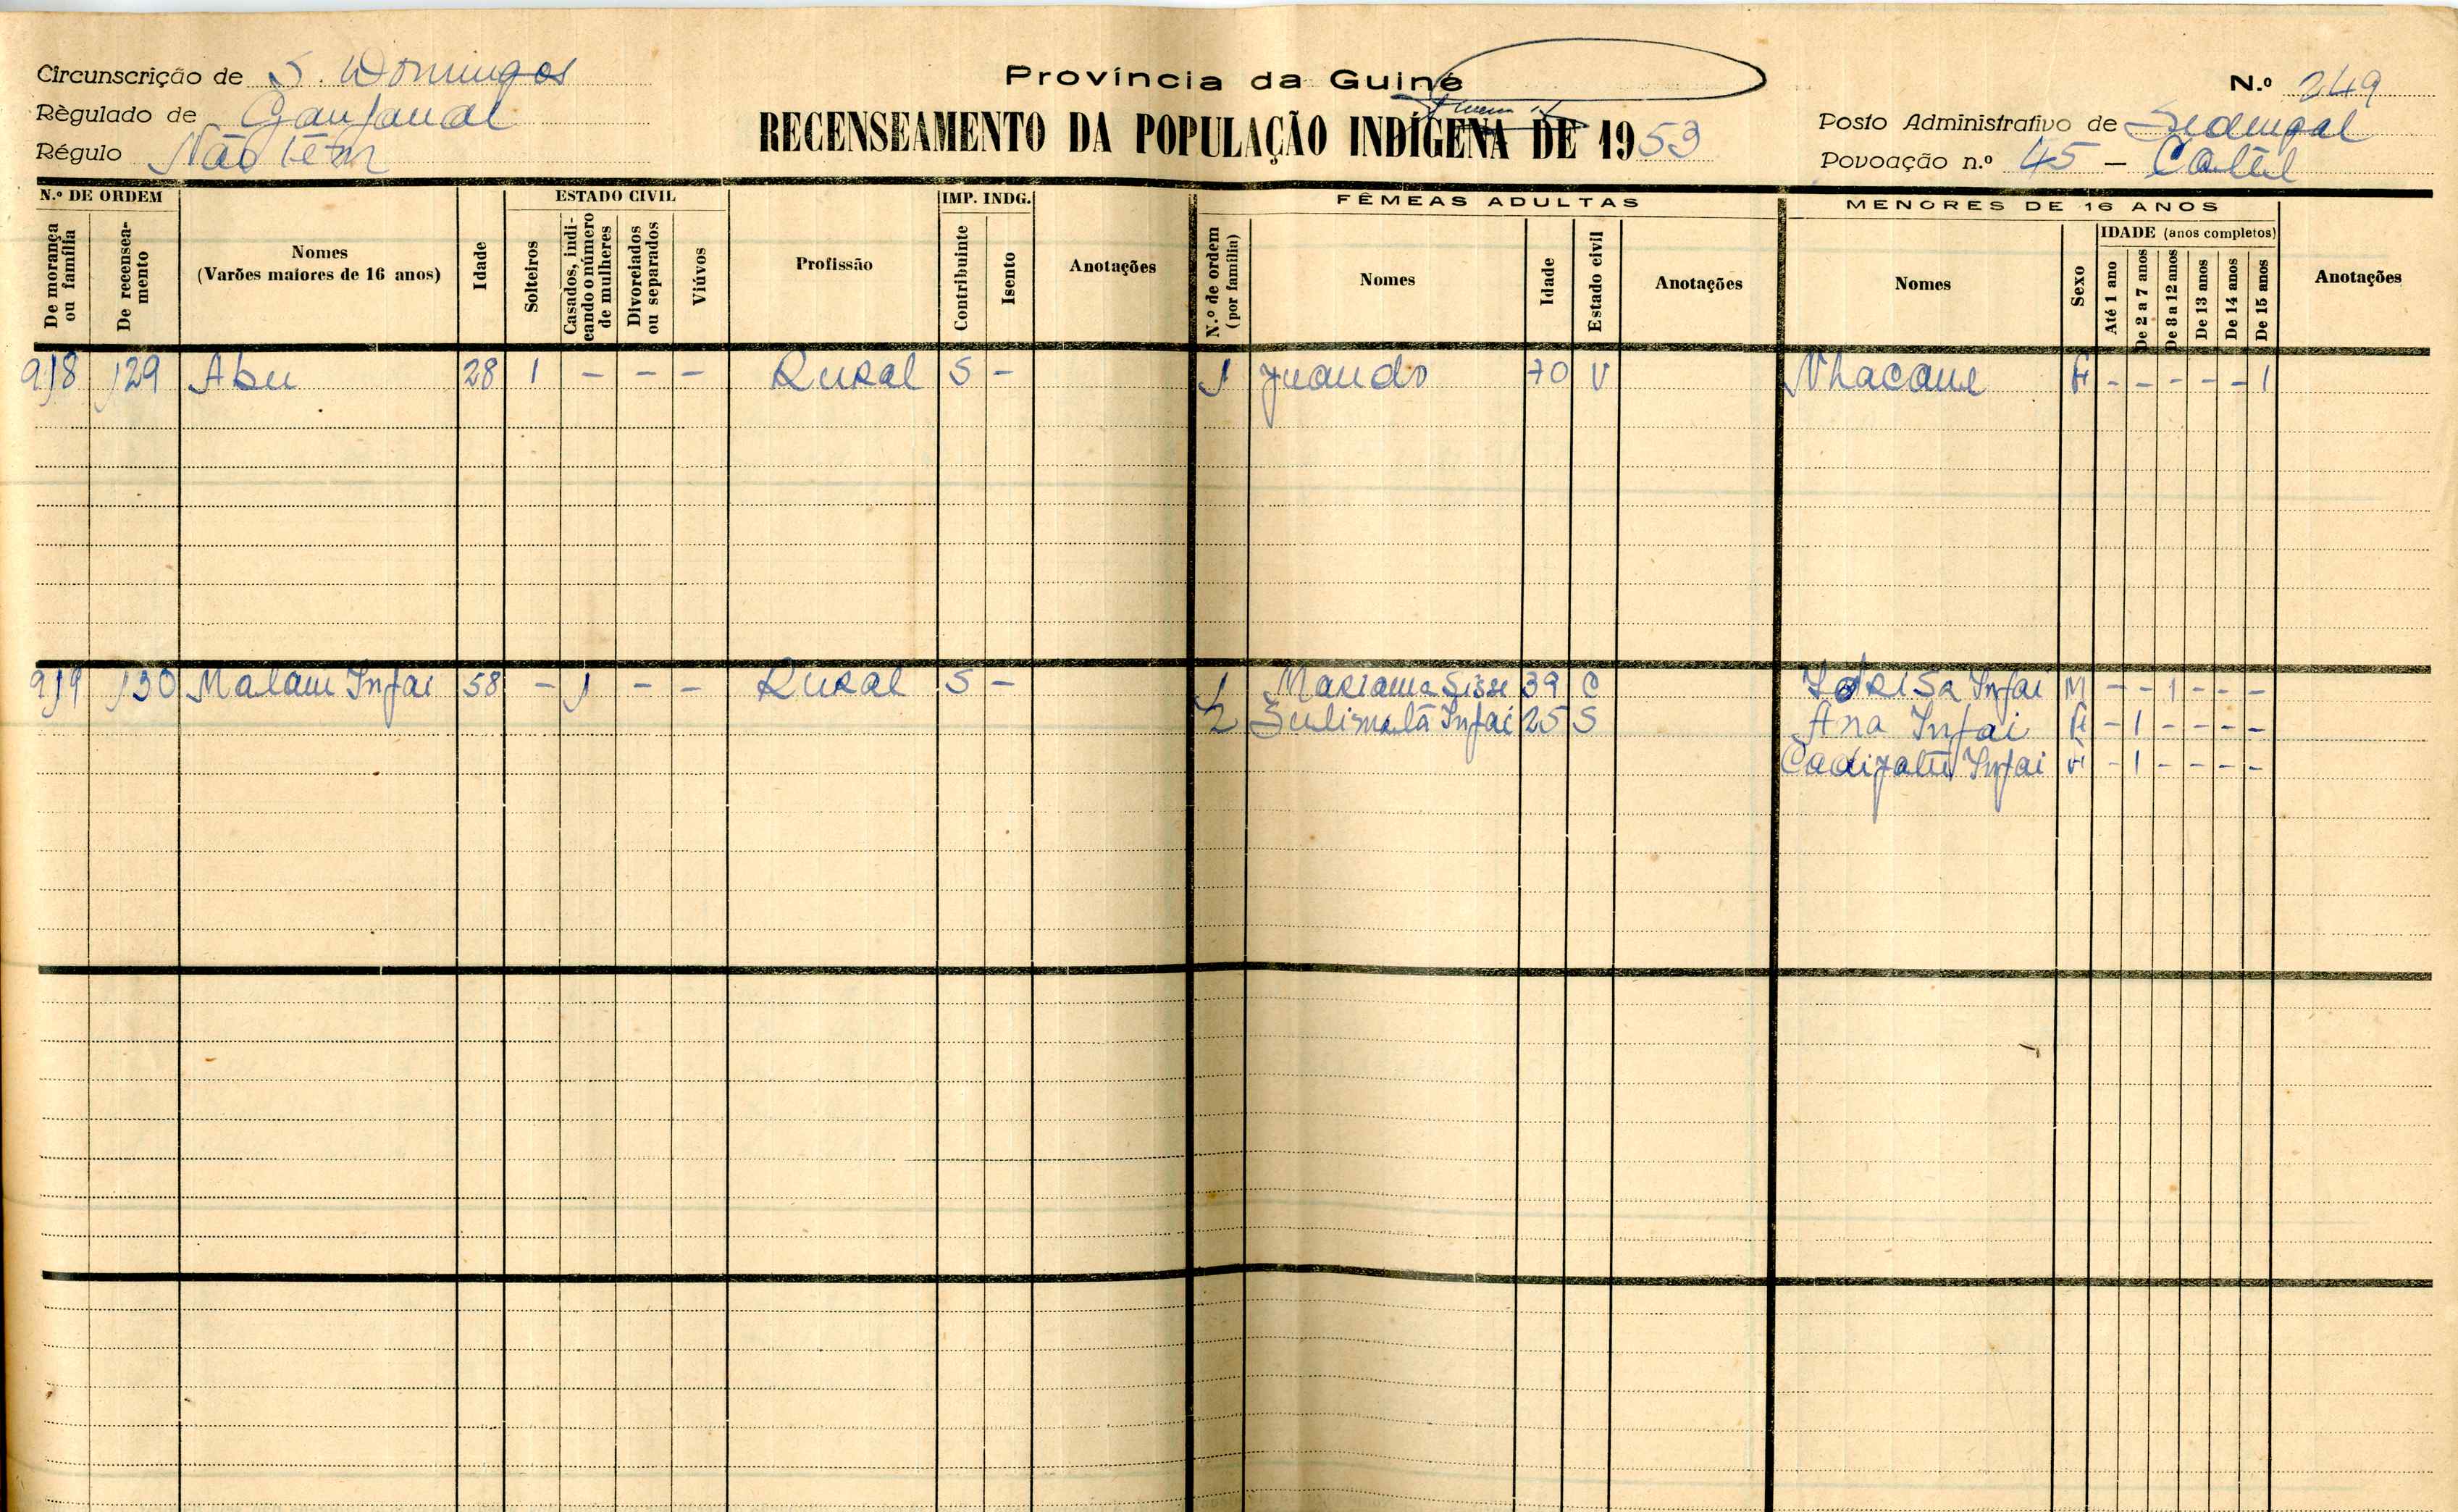 Circunscrição de S. Domingos
Règulado de
Régulo Não têm
Província da Guiné
RECENSEAMENTO DA POPULAÇÃO INDÍGENA DE 1953
N.º 249
Posto Administrativo de Sedengal
Povoação n.º 45 –
N.º DE ORDEM
De morança ou família
De recenseamento
Nomes
(Varões maiores de 16 anos)
Idade
ESTADO CIVIL
Solteiros
Casados, indicando o número de mulheres
Divorciados ou separados
Viúvos
Profissão
IMP. INDG.
Contribuinte
Isento
Anotações
FÊMEAS ADULTAS
N.º de ordem (por família)
Nomes
Idade
Estado civil
Anotações
MENORES DE 16 ANOS
Nomes
Sexo
IDADE (anos completos)
Até 1 ano
De 2 a 7 anos
De 8 a 12 anos
De 13 anos
De 14 anos
De 15 anos
Anotações
918 129 Abu 28 1 – – – Rural S – 1 70 V Nhacane F – – – – – 1
919 130 Malam Infai 58 – 1 – – Rural S – 1 Mariama Sisse 39 C Infai M – – 1 – – –
2 Infai 25 S Ana Infai F – 1 – – – –
Cadijatú Infai F – 1 – – – –